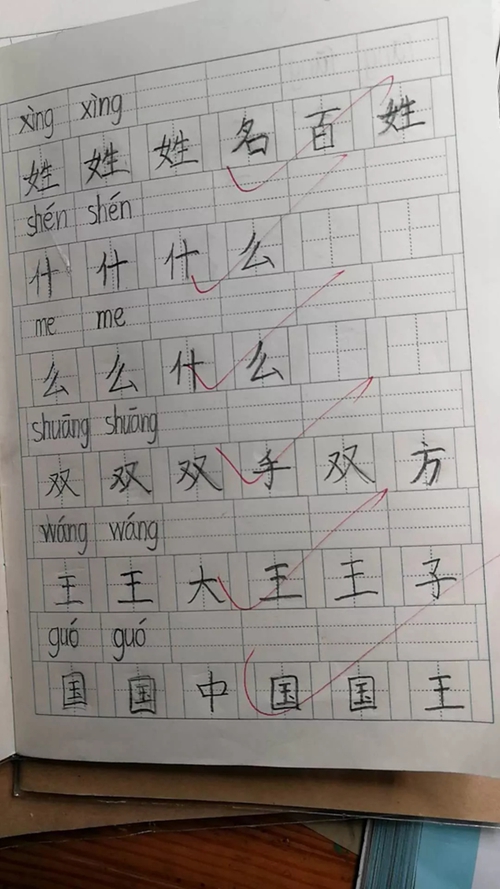 xìng xìng
姓 姓 姓 名 百 姓
shén shén
什 什 什 么
me me
么 么 什 么
shuāng shuāng
双 双 双 手 双 方
wáng wáng
王 王 大 王 王 子
guó guó
国 国 中 国 国 王